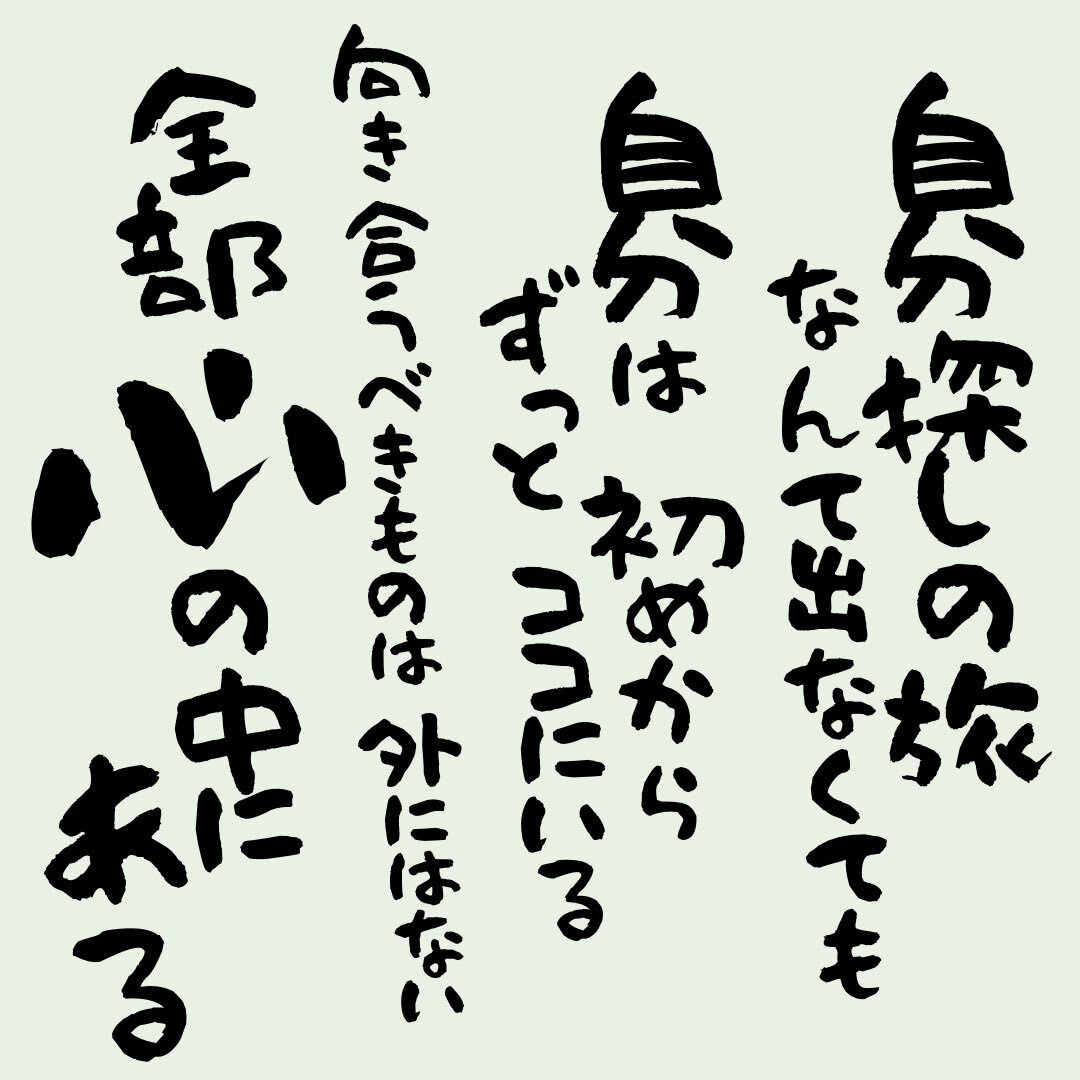 自分探しの旅
なんて出なくても
自分は 初めから
ずっと ココにいる
向き合うべきものは 外にはない
全部 心の中に
ある